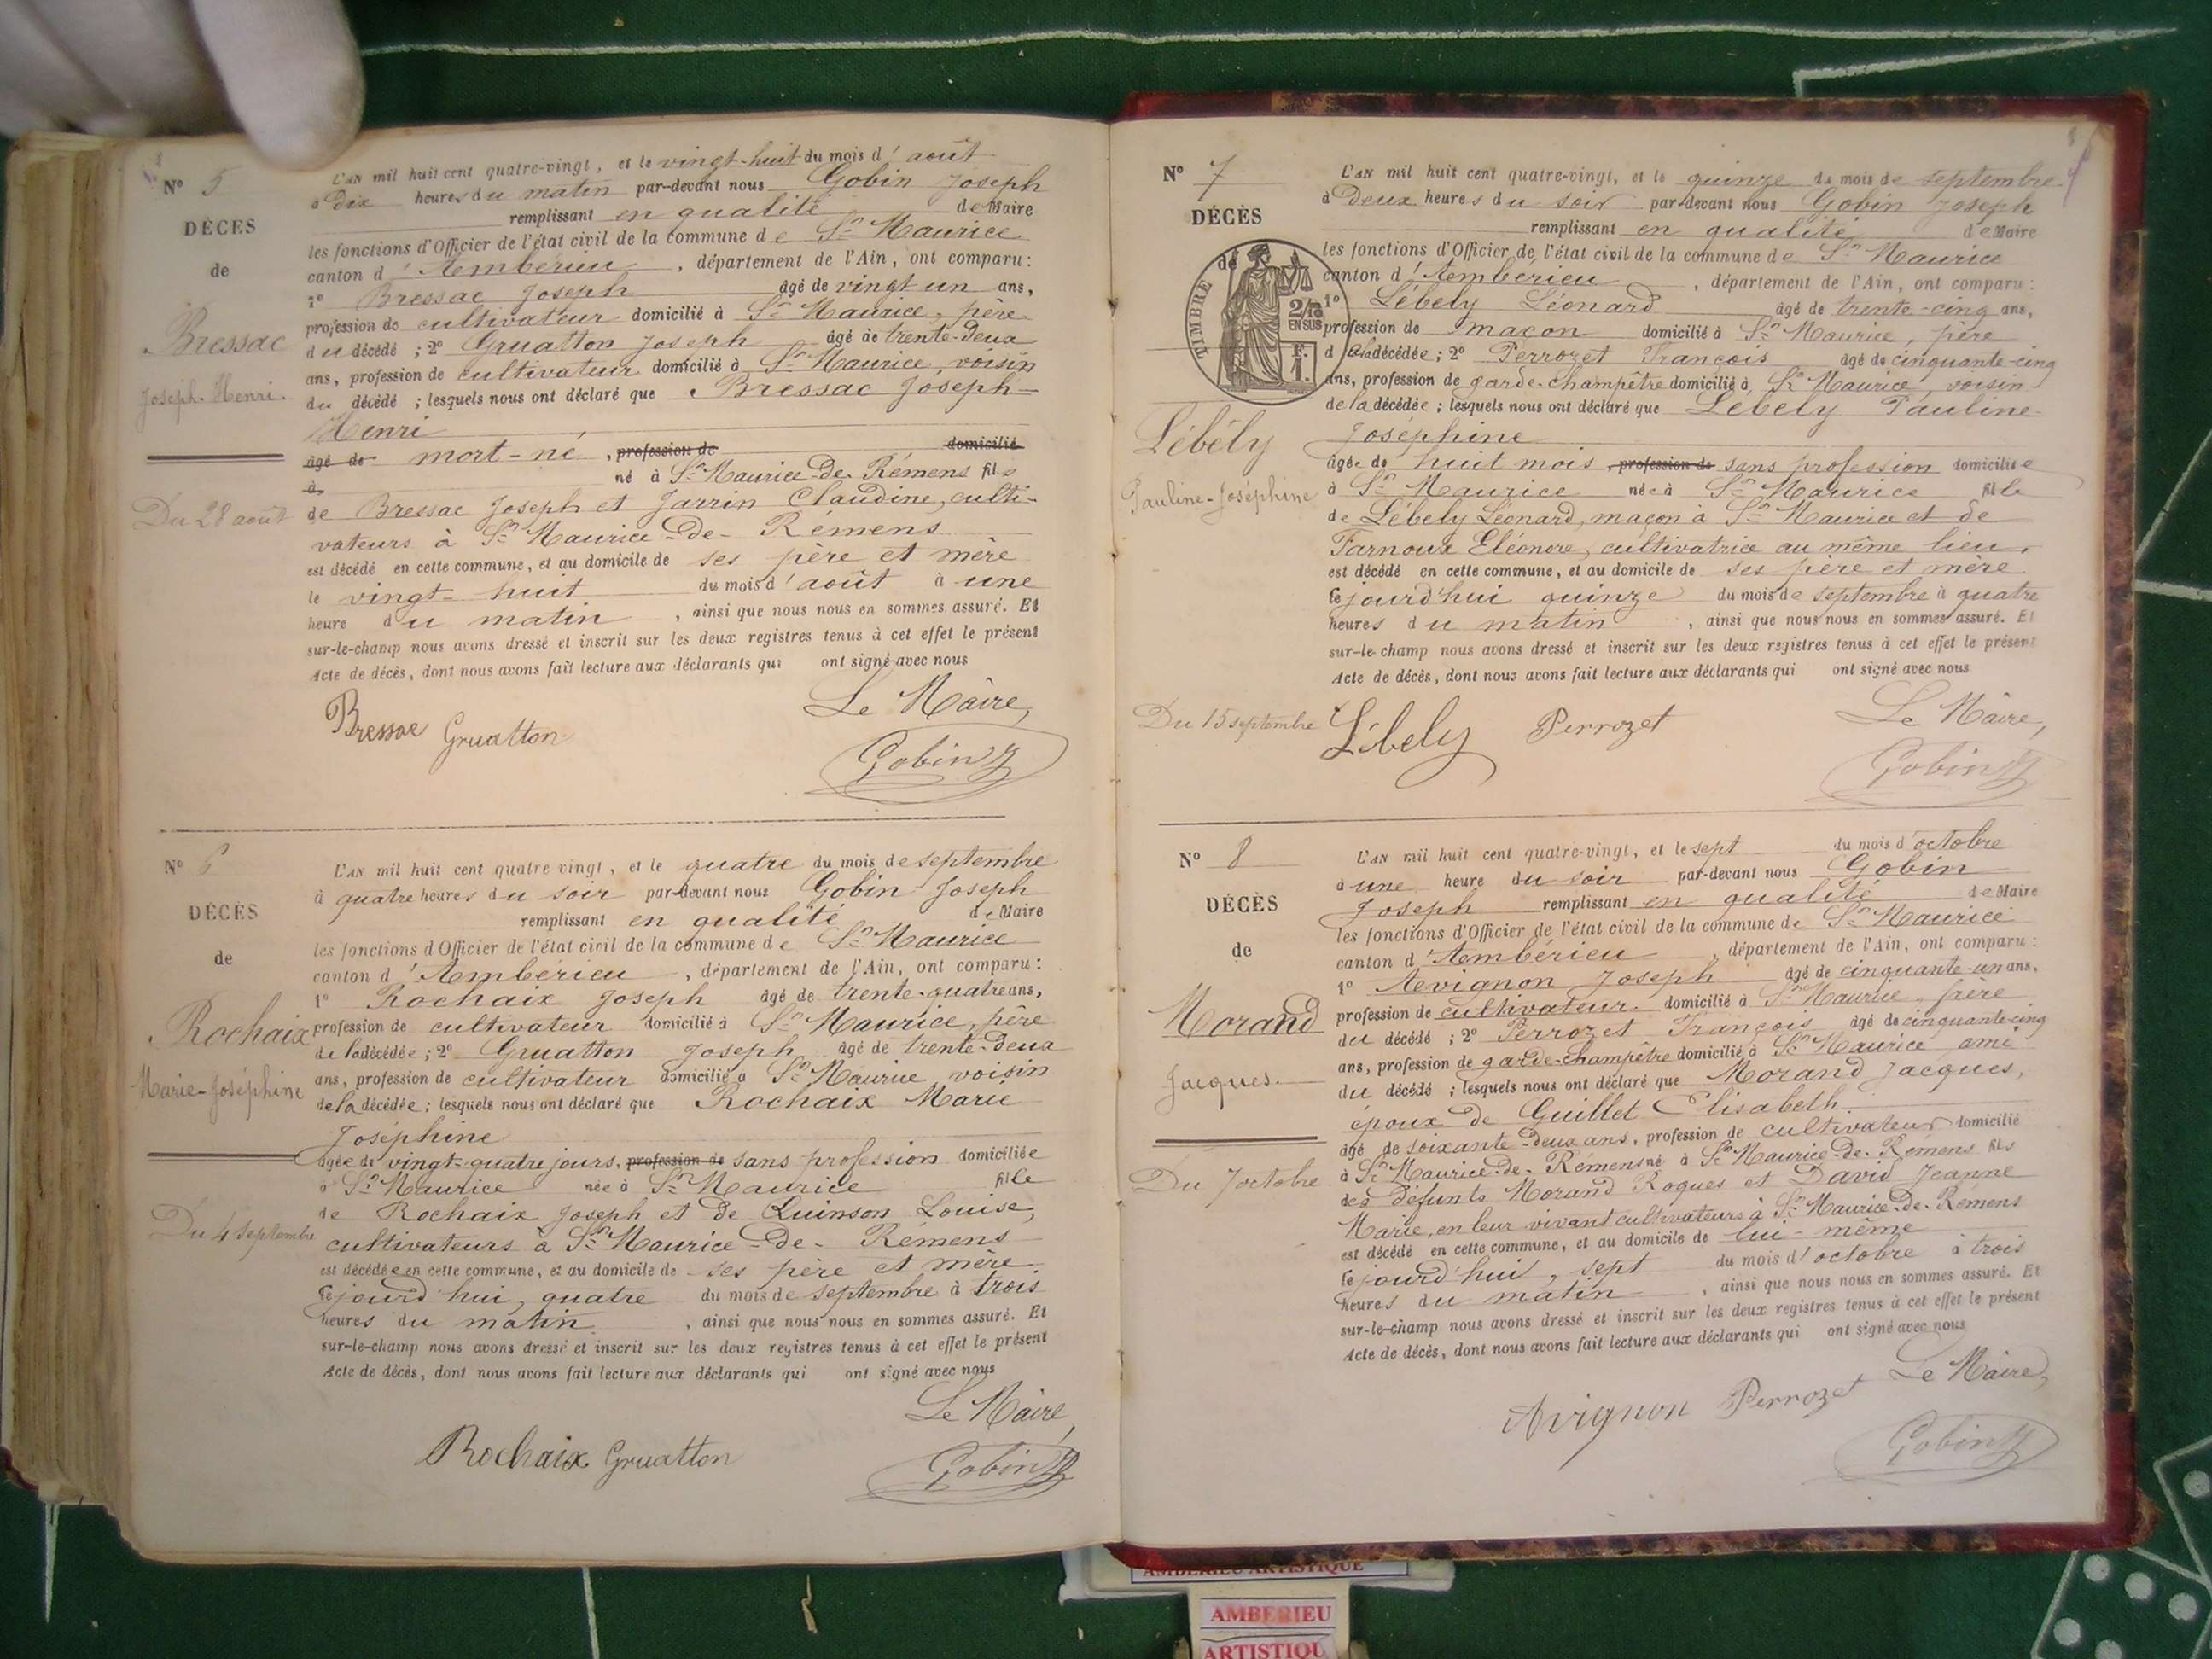 N° 5
DÉCÈS
de
Bressac
Joseph-Henri
Du 28 août
L'AN mil huit cent quatre-vingt, et le vingt-huit du mois d'août
à Dix heures du matin par-devant nous Gobin Joseph
remplissant en qualité de Maire
les fonctions d'Officier de l'état civil de la commune de St Maurice
canton d'Ambérieu, département de l'Ain, ont comparu:
1° Bressac Joseph âgé de vingt un ans,
profession de cultivateur domicilié à St Maurice, père
du décédé; 2° Gruatton Joseph âgé de trente-deux
ans, profession de cultivateur domicilié à St Maurice, voisin
du décédé; lesquels nous ont déclaré que Bressac Joseph-
Henri
âgé de mort-né, profession de domicilié
à né à St Maurice-de-Rémens fils
de Bressac Joseph et Jarrin Claudine, culti-
vateurs à St Maurice-de-Rémens
est décédé en cette commune, et au domicile de ses père et mère
le vingt-huit du mois d'août à une
heure du matin, ainsi que nous nous en sommes assuré. Et
sur-le-champ nous avons dressé et inscrit sur les deux registres tenus à cet effet le présent
Acte de décès, dont nous avons fait lecture aux déclarants qui ont signé avec nous
Le Maire,
Bressac Gruatton
Gobin J
N° 6
DÉCÈS
de
Rochaix
Marie-Joséphine
Du 4 Septembre
L'AN mil huit cent quatre vingt, et le quatre du mois de septembre
à quatre heures du soir par-devant nous Gobin Joseph
remplissant en qualité de Maire
les fonctions d'Officier de l'état civil de la commune de St Maurice
canton d'Ambérieu, département de l'Ain, ont comparu:
1° Rochaix Joseph âgé de trente-quatre ans,
profession de cultivateur domicilié à St Maurice, père
de la décédée; 2° Gruatton Joseph âgé de trente-deux
ans, profession de cultivateur domicilié à St Maurice voisin
de la décédée; lesquels nous ont déclaré que Rochaix Marie
Joséphine
âgée de vingt-quatre jours, profession de sans profession domiciliée
à St Maurice née à St Maurice fille
de Rochaix Joseph et de Quinson Louise,
cultivateurs à St Maurice-de-Rémens
est décédée en cette commune, et au domicile de ses père et mère
cejourd'hui, quatre du mois de septembre à trois
heures du matin, ainsi que nous nous en sommes assuré. Et
sur-le-champ nous avons dressé et inscrit sur les deux registres tenus à cet effet le présent
Acte de décès, dont nous avons fait lecture aux déclarants qui ont signé avec nous
Le Maire,
Rochaix Gruatton
Gobin J
N° 7
DÉCÈS
de
TIMBRE
2/10
EN SUS
F.
1.
Lébély
Pauline-Joséphine
Du 15 septembre
L'AN mil huit cent quatre-vingt, et le quinze du mois de septembre
à Deux heures du soir par-devant nous Gobin Joseph
remplissant en qualité de Maire
les fonctions d'Officier de l'état civil de la commune de St Maurice
canton d'Amberieu, département de l'Ain, ont comparu:
1° Lébely Léonard âgé de trente-cinq ans,
profession de maçon domicilié à St Maurice, père
de la décédée; 2° Perrozet François âgé de cinquante-cinq
ans, profession de garde-champêtre domicilié à St Maurice, voisin
de la décédée; lesquels nous ont déclaré que Lébely Pauline-
Joséphine
âgée de huit mois, profession de sans profession domiciliée
à St Maurice née à St Maurice fille
de Lébely Léonard, maçon à St Maurice et de
Farnoux Eléonore, cultivatrice au même lieu,
est décédé en cette commune, et au domicile de ses père et mère
cejourd'hui quinze du mois de septembre à quatre
heures du matin, ainsi que nous nous en sommes assuré. Et
sur-le-champ nous avons dressé et inscrit sur les deux registres tenus à cet effet le présent
Acte de décès, dont nous avons fait lecture aux déclarants qui ont signé avec nous
Le Maire,
Lébely Perrozet
Gobin J
N° 8
DÉCÈS
de
Morand
Jacques
Du 7 octobre
L'AN mil huit cent quatre-vingt, et le sept du mois d'octobre
à une heure du soir par-devant nous Gobin
Joseph remplissant en qualité de Maire
les fonctions d'Officier de l'état civil de la commune de St Maurice
canton d'Ambérieu, département de l'Ain, ont comparu:
1° Avignon Joseph âgé de cinquante-un ans,
profession de cultivateur domicilié à St Maurice, frère
du décédé; 2° Perrozet François âgé de cinquante-cinq
ans, profession de garde-champêtre domicilié à St Maurice ami
du décédé; lesquels nous ont déclaré que Morand Jacques,
époux de Guillet Elisabeth
âgé de soixante-deux ans, profession de cultivateur domicilié
à St Maurice-de-Rémens né à St Maurice-de-Rémens fils
des défunts Morand Roques et David Jeanne
Marie, en leur vivant cultivateurs à St Maurice-de-Rémens
est décédé en cette commune, et au domicile de lui-même
cejourd'hui, sept du mois d'octobre à trois
heures du matin, ainsi que nous nous en sommes assuré. Et
sur-le-champ nous avons dressé et inscrit sur les deux registres tenus à cet effet le présent
Acte de décès, dont nous avons fait lecture aux déclarants qui ont signé avec nous
Le Maire,
Avignon Perrozet
Gobin J
AMBERIEU ARTISTIQUE
AMBERIEU
ARTISTIQU